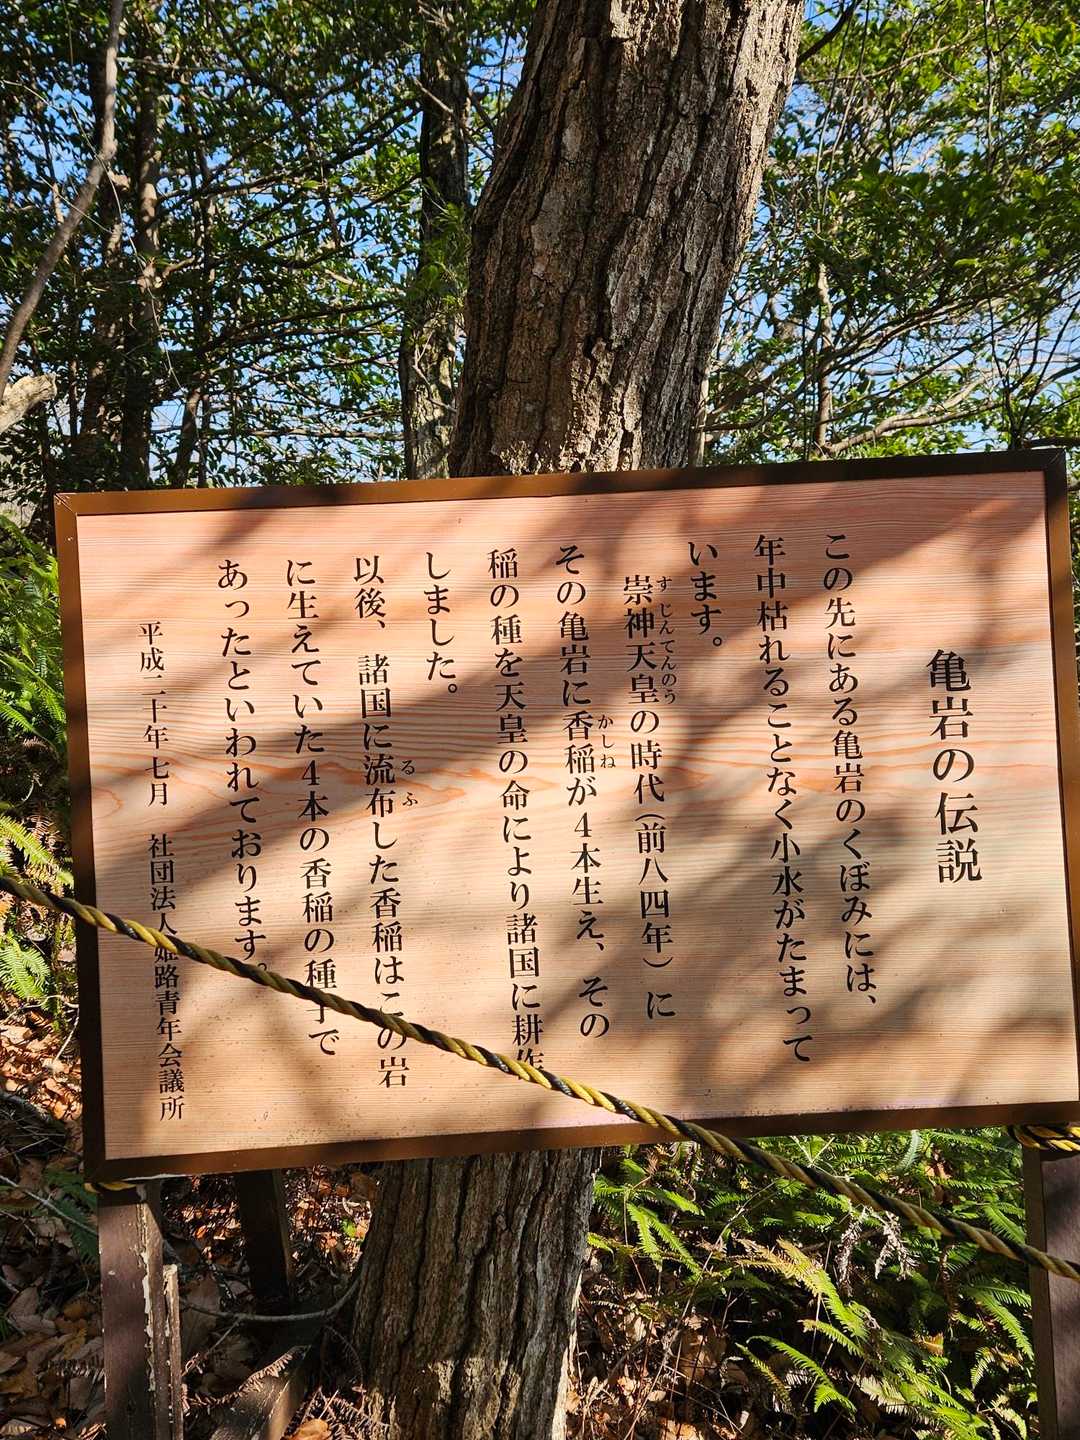 亀岩の伝説
この先にある亀岩のくぼみには、
年中枯れることなく小水がたまって
います。
崇神天皇の時代(前八四年)に
すじんてんのう
その亀岩に香稲が4本生え、その
かしね
稲の種を天皇の命により諸国に耕作
しました。
以後、諸国に流布した香稲はこの岩
るふ
に生えていた4本の香稲の種子で
あったといわれております。
平成二十年七月 社団法人姫路青年会議所